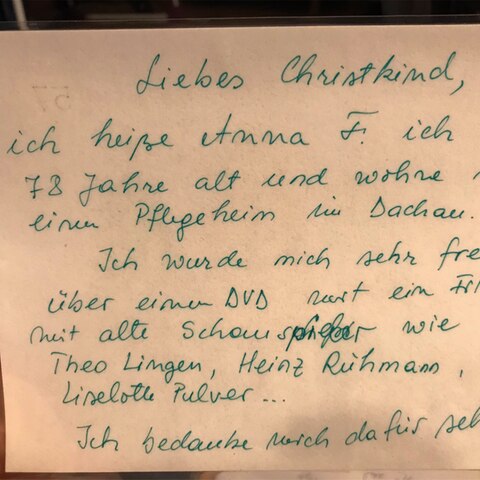 Liebes Christkind,
ich heiße Anna F. ich
78 Jahre alt und wohne
einen Pflegeheim in Dachau.
Ich wurde mich sehr fre
über einen DVD mit ein
mit alte Schauspieler wie
Theo Lingen, Heinz Rühmann,
Liselotte Pulver...
Ich bedanke mich dafür seh